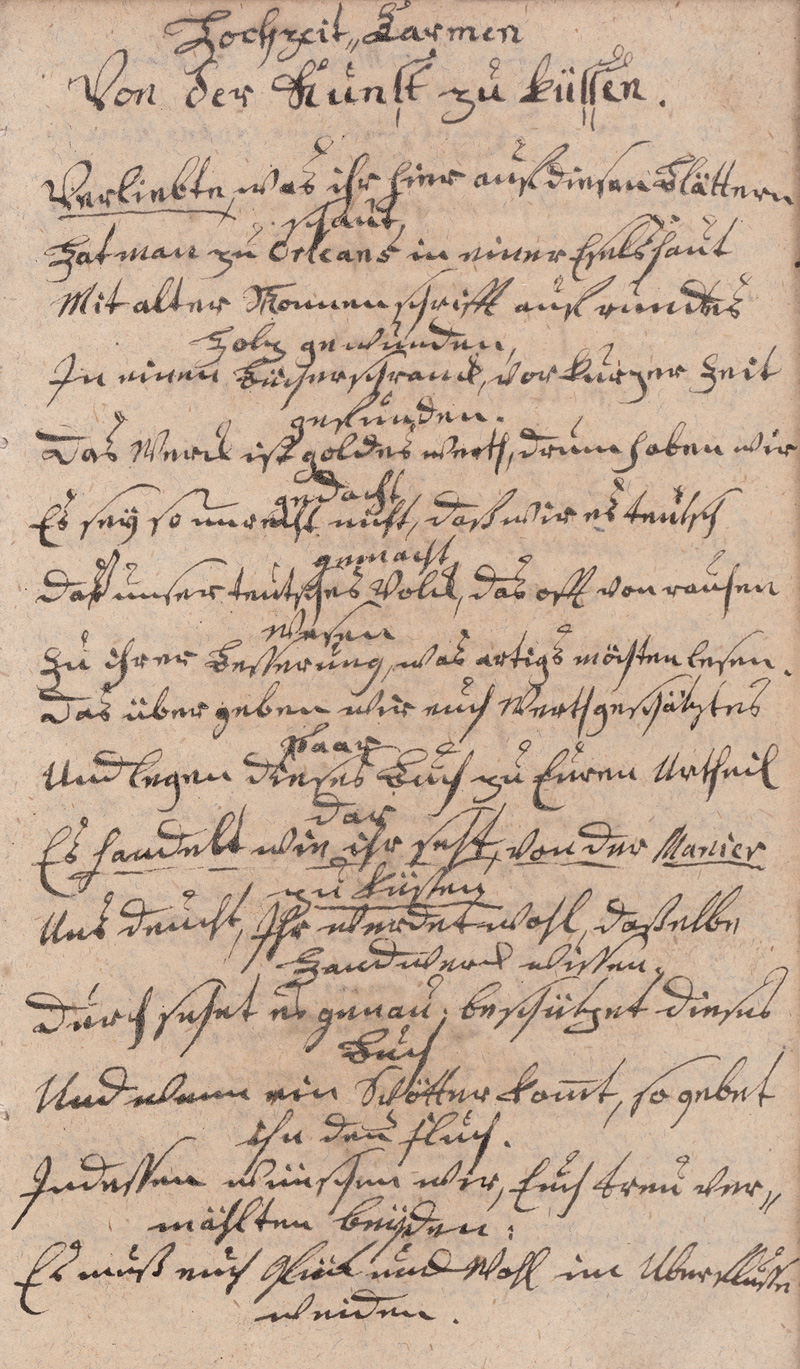 Hochzeit„ Carmen
Von der Kunst zu küssen.
Verliebte, was ihr hier auf diesen Blättern
schaut,
Hat man zu Orleans in einer Eselshaut
Mit alter Nonnenschrifft auf rundes
Holz gewunden,
In einen Bücherschranck, vor kurzer Zeit
gefunden.
Das Werck ist goldes werth, drum haben wir
gedacht,
Es sey so unrecht nicht, daß wir es teutsch
gemacht,
Daß unser teutsches Volck, das offt von rauhen
Wesen
Zu ihrer Besserung, was artigs möchten lesen.
Das übergeben wir euch Werthgeschätztes
Paar
Und legen dieses Buch zu Euren Urtheil
dar
Es handelt wie ihr seht, von der Manier
zu küssen
Uns deucht, Ihr werdet wohl, daßelbe
Handwerck wissen.
Durchsehet es genau, beschützet dieses
Buch
Und wenn ein Spötter kom̄t, so gebet
ihn den fluch.
Indessen wünschen wir, Euch treu ver„
mählten beyden:
Es muß euch Glück und Wohl im Uberflusse
weiden.